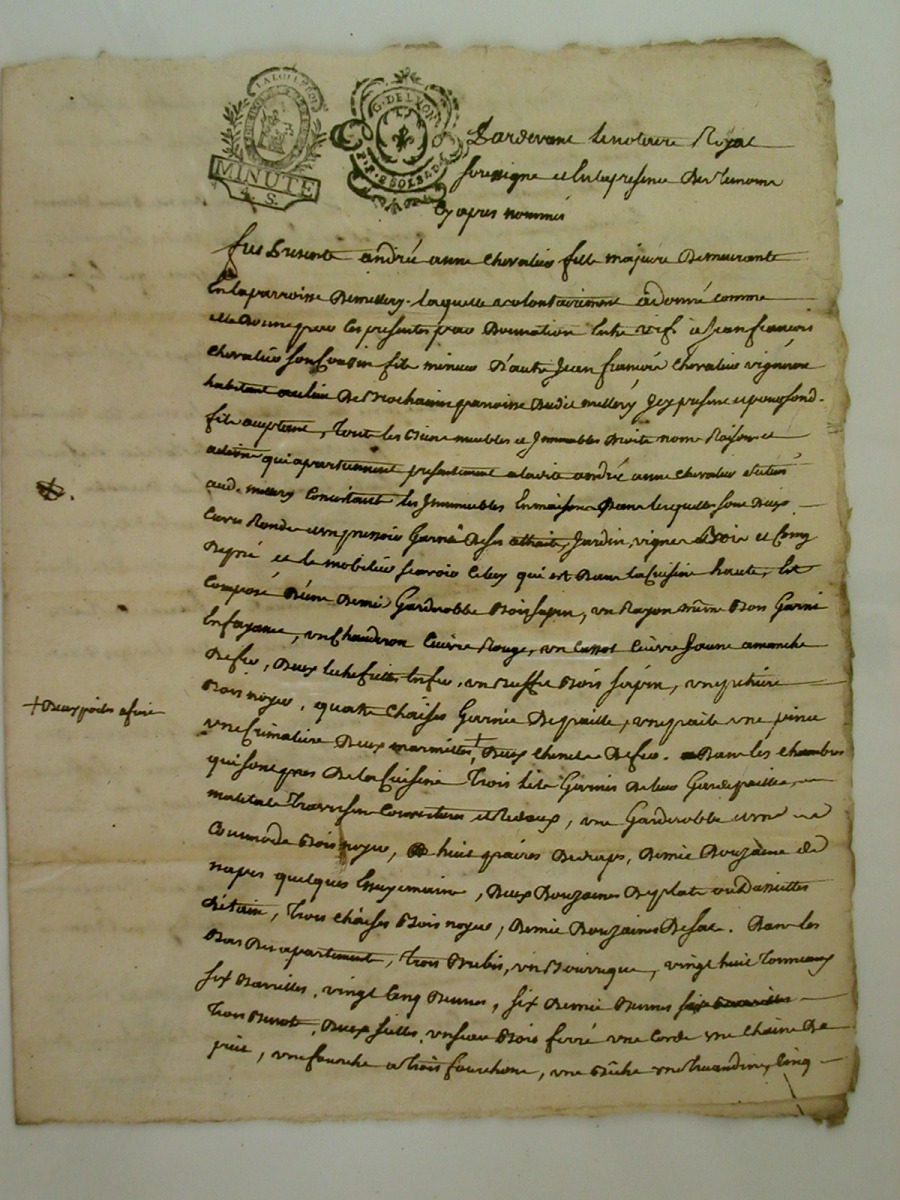 LA LOI LE ROI
MINUTE
4 S.
G. DE LYON
Pardevant le notaire Royal
soussigné et En la presence Des Temoins
Cy apres nommés
fut Presente andrée anne Chevalier fille majeure Demeurante
En la parroisse De millery. laquelle a volontairement a donné comme
elle Donne par les presentes par Donnation Entre vifs a Jean françois
Chevalier son Cousin fils mineur D'autre Jean françois Chevalier vigneron
habitant au lieu De Brochaine parroisse Dudit millery Icy present et pour son d.
fils acceptant, Tous les Biens meubles et Immeubles Droits noms Raisons et
actions qui apartiennent presentement a ladite andrée anne Chevalier situés
aud. millery Consistant les Immeubles En maisons Dans lesquelles sont Deux
Cuves Rondes un pressoir Garni De ses attraits, Jardin, vignes Bois et
De pré et le mobilier scavoir Celuy qui est Dans la Cuisine haute, Est
Composé D'une Demie Garderobbe Bois sapin, un Rayon même Bois Garni
En fayance, un Chauderon Cuivre Rouge, un Cassot Cuivre Jaune a manche
De fer, Deux lechefrites En fer, un Buffet Bois sapin, une petriere
Bois noyer, quatre Chaises Garnies De paille, une paile une pince
une Crimaliere Deux marmittes +, Deux Chenets De fer. Dans les Chambres
qui sont pres De la Cuisine Trois lits Garnis De leur Gardepaille,
matelats Traversin Couvertures et Rideaux, une Garderobbe une
Commode Bois noyer, huit paires De draps, Demie Douzaine De
napes quelques Essuyemains, Deux Douzaines De plats ou D'assiettes
D'étain, Trois Chaises Bois noyer, Demie Douzaine De sac. Dans les
Bas Des apartements, Trois Brebis, un Bourrique, vingt huit Tonneaux
six Barrilles, vingt Cinq Bennes, six Demie Bennes
Trois Benots, Deux seilles, un seau Bois ferré une Corde une Chaine De
puit, une fourche a trois fourchons, une Bêche un Truandine, Cinq
+ Deux poiles a frire